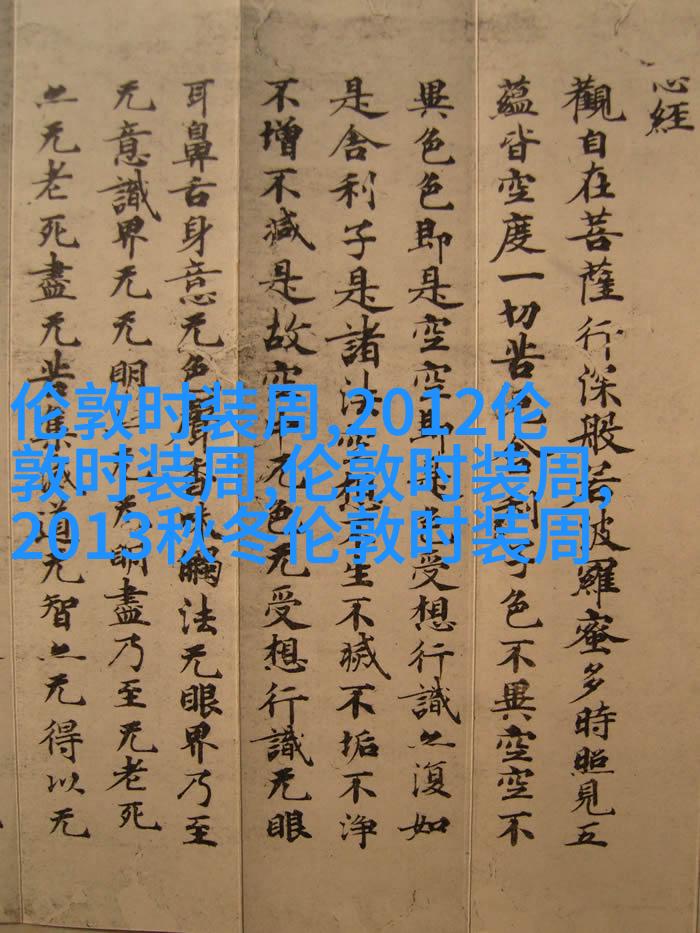 心經
觀自在菩薩行深般若波羅蜜多時照見五
蘊皆空度一切苦厄舍利子色不異空空不
異色色即是空空即是色受想行識亦復如
是舍利子是諸法空想不生不滅不垢不淨
不增不減是故空中无色无受想行識无眼
耳鼻舌身意无色聲香味觸法无眼界乃至
无意識界无无明亦无无明盡乃至无老死
亦无老死盡无苦集滅道无智亦无得以无
伦敦时装周,2012伦
敦时装周,伦敦时装周,
2013秋冬伦敦时装周,